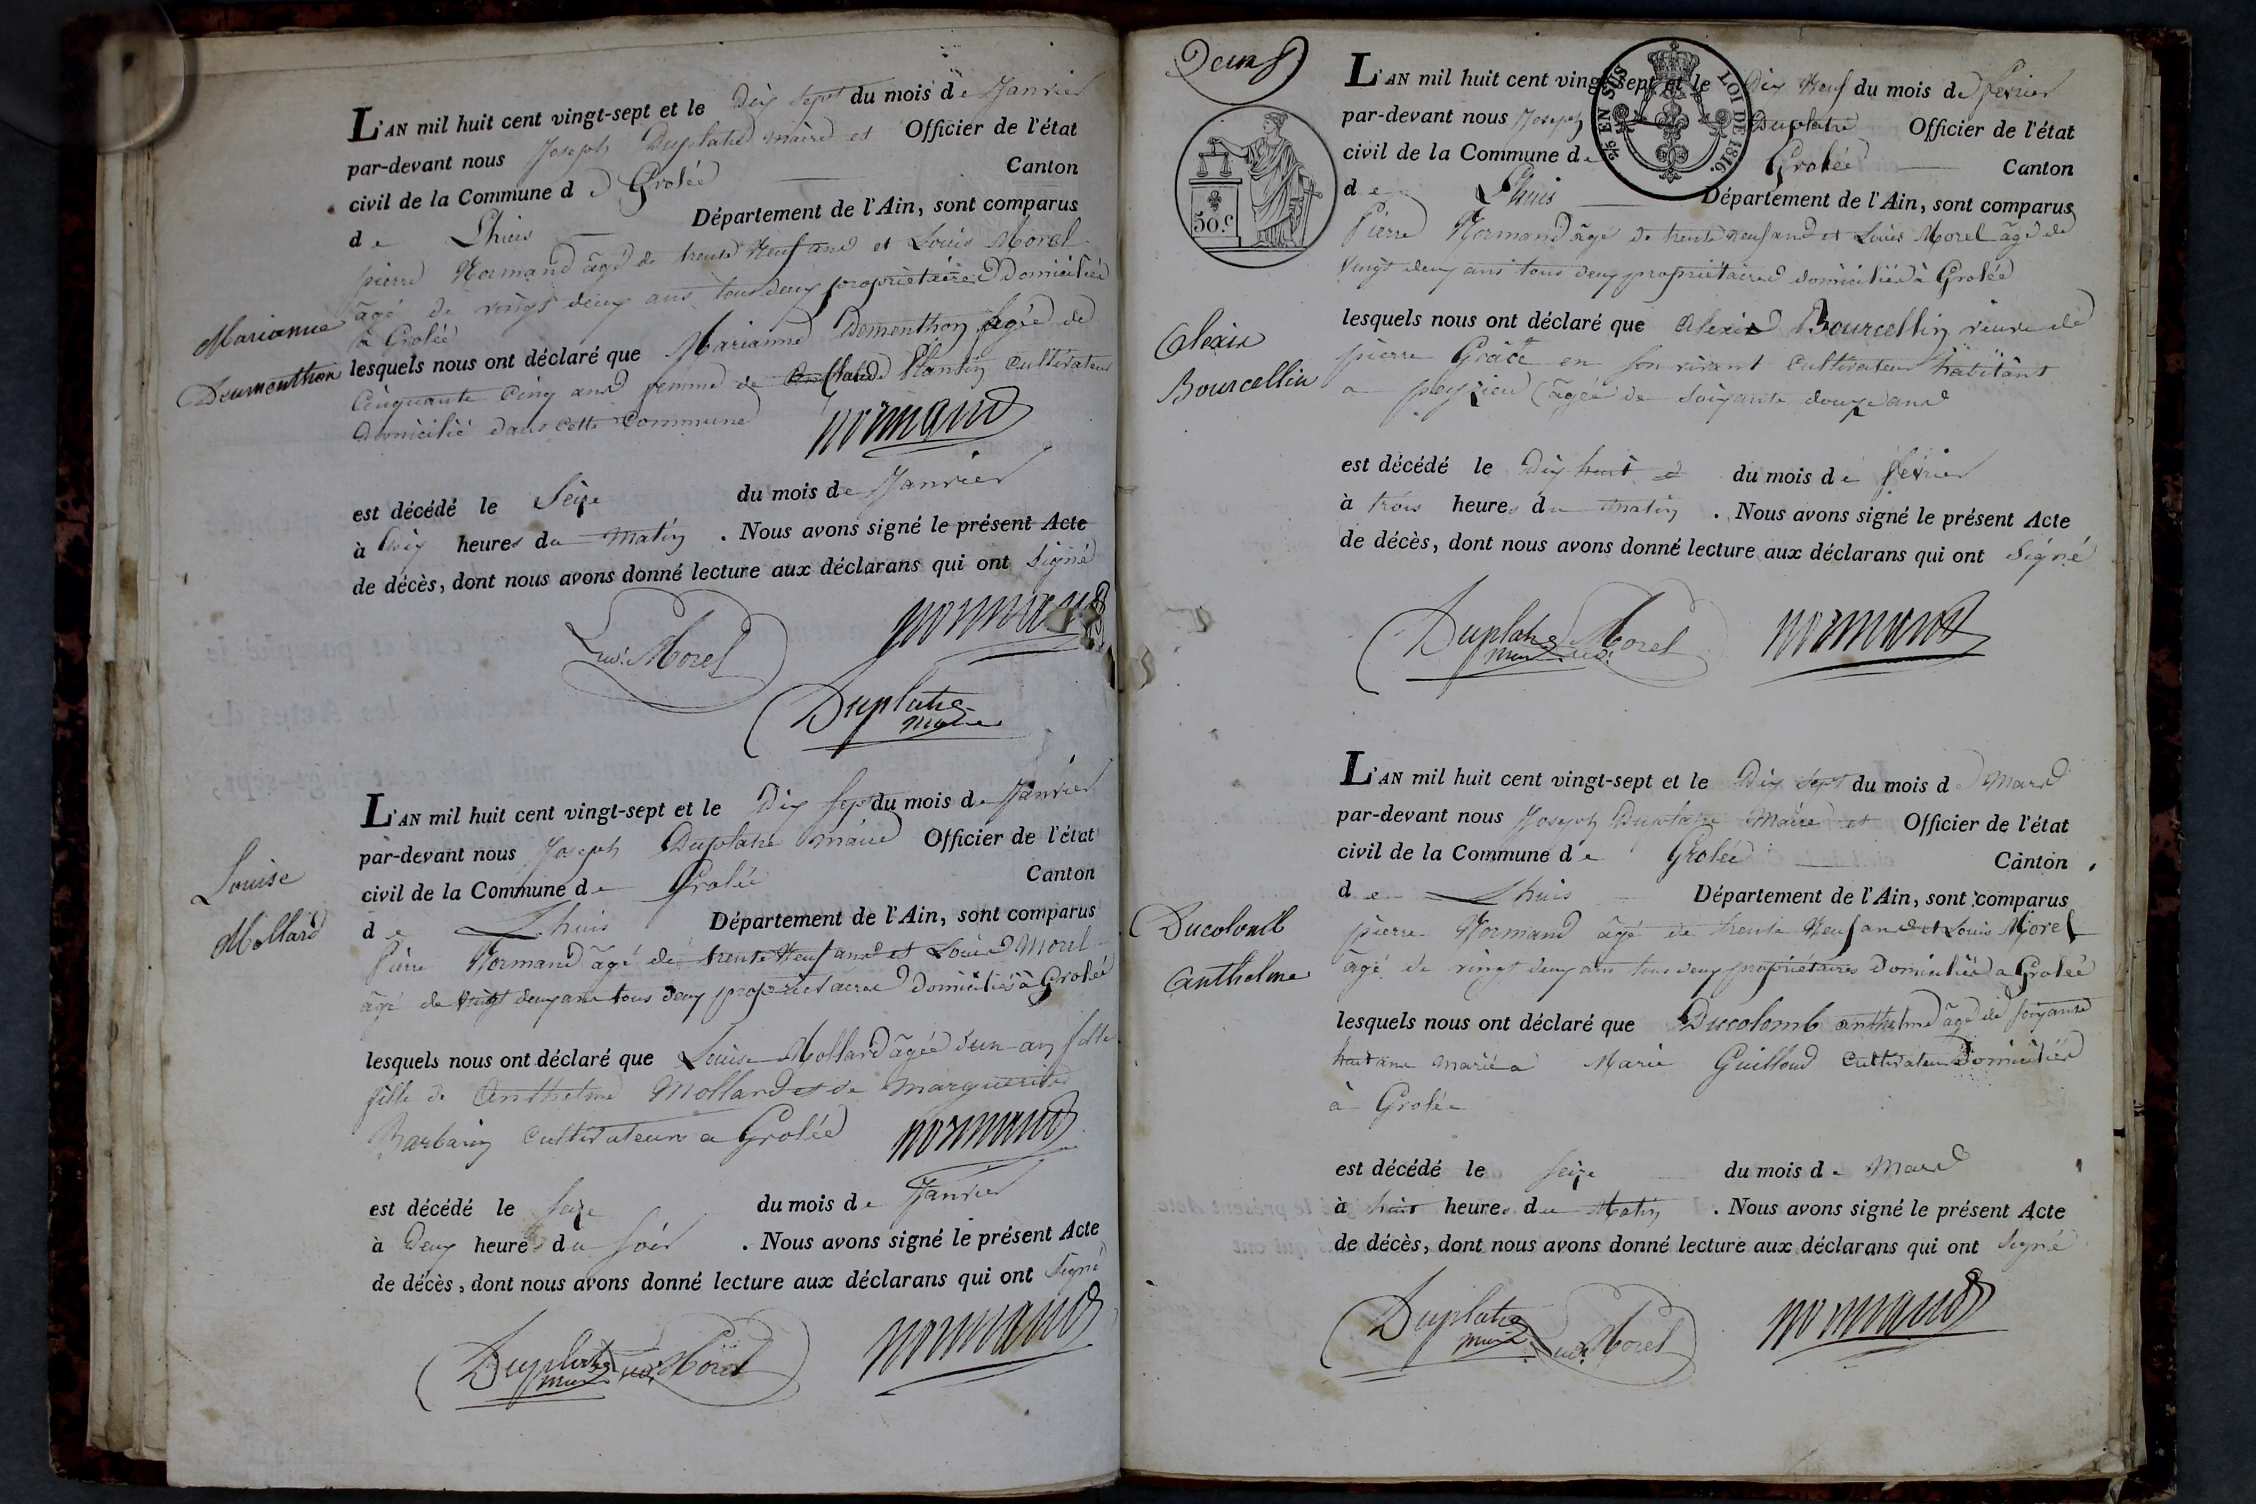 L'AN mil huit cent vingt-sept et le Dix Sept du mois de Janvier
par-devant nous Joseph Duplatre maire et Officier de l'état
civil de la Commune de Grolée Canton
de Lhuis Département de l'Ain, sont comparus
pierre Normand âgé de trente Neuf ans et Louis Morel
âgé de vingt deux ans tous deux propriétaires Domiciliés
à Grolée
Marianne
Demonthon
lesquels nous ont déclaré que Marianne Demonthon âgée de
Cinquante Cinq ans femme de Claude Plantin Cultivateur
Domicilié dans cette Commune normand
est décédé le Seize du mois de Janvier
à heures du Matin . Nous avons signé le présent Acte
de décès, dont nous avons donné lecture aux déclarans qui ont Signé
Morel normand
Duplatre
maire
L'AN mil huit cent vingt-sept et le Dix Sept du mois de Janvier
par-devant nous Joseph Duplatre maire Officier de l'état
civil de la Commune de Grolée Canton
Louise
Mollard
de Lhuis Département de l'Ain, sont comparus
Pierre Normand âgé de trente Neuf ans et Louis Morel
âgé de vingt deux ans tous deux propriétaires Domiciliés à Grolée
lesquels nous ont déclaré que Louise Mollard âgée d'un an
fille de Anthelme Mollard et de Marguerite
Barbarin Cultivateurs a Grolée normand
est décédé le Seize du mois de Janvier
à Deux heures du Soir . Nous avons signé le présent Acte
de décès, dont nous avons donné lecture aux déclarans qui ont Signé
Duplatre Morel normand
Deux
L'AN mil huit cent vingt-sept et le Dix Neuf du mois de février
par-devant nous Joseph Duplatre Officier de l'état
civil de la Commune de Grolée Canton
de Lhuis Département de l'Ain, sont comparus
EN SUS LOI DE 1816.
50.c
Pierre Normand âgé de trente neuf ans et Louis Morel âgé de
Vingt deux ans tous deux propriétaires domiciliés à Grolée
Alexie
Bourcellin
lesquels nous ont déclaré que Alexie Bourcellin veuve de
pierre en son vivant Cultivateur habitant
a peyzieu âgée de Soixante douze ans
est décédé le Dix huit du mois de février
à trois heures du Matin . Nous avons signé le présent Acte
de décès, dont nous avons donné lecture aux déclarans qui ont Signé
Duplatre Morel normand
L'AN mil huit cent vingt-sept et le Dix Sept du mois de Mars
par-devant nous Joseph Duplatre Maire et Officier de l'état
civil de la Commune de Grolée Canton
de Lhuis Département de l'Ain, sont comparus
Ducolomb
Anthelme
pierre Normand âgé de trente Neuf ans et Louis Morel
âgé de vingt deux ans tous deux propriétaires Domiciliés a Grolée
lesquels nous ont déclaré que Ducolomb anthelme âgé de soixante
huit ans marié a Marie Guilloud Cultivateur Domicilié
à Grolée
est décédé le Seize du mois de Mars
à huit heures du Matin . Nous avons signé le présent Acte
de décès, dont nous avons donné lecture aux déclarans qui ont Signé
Duplatre Morel normand